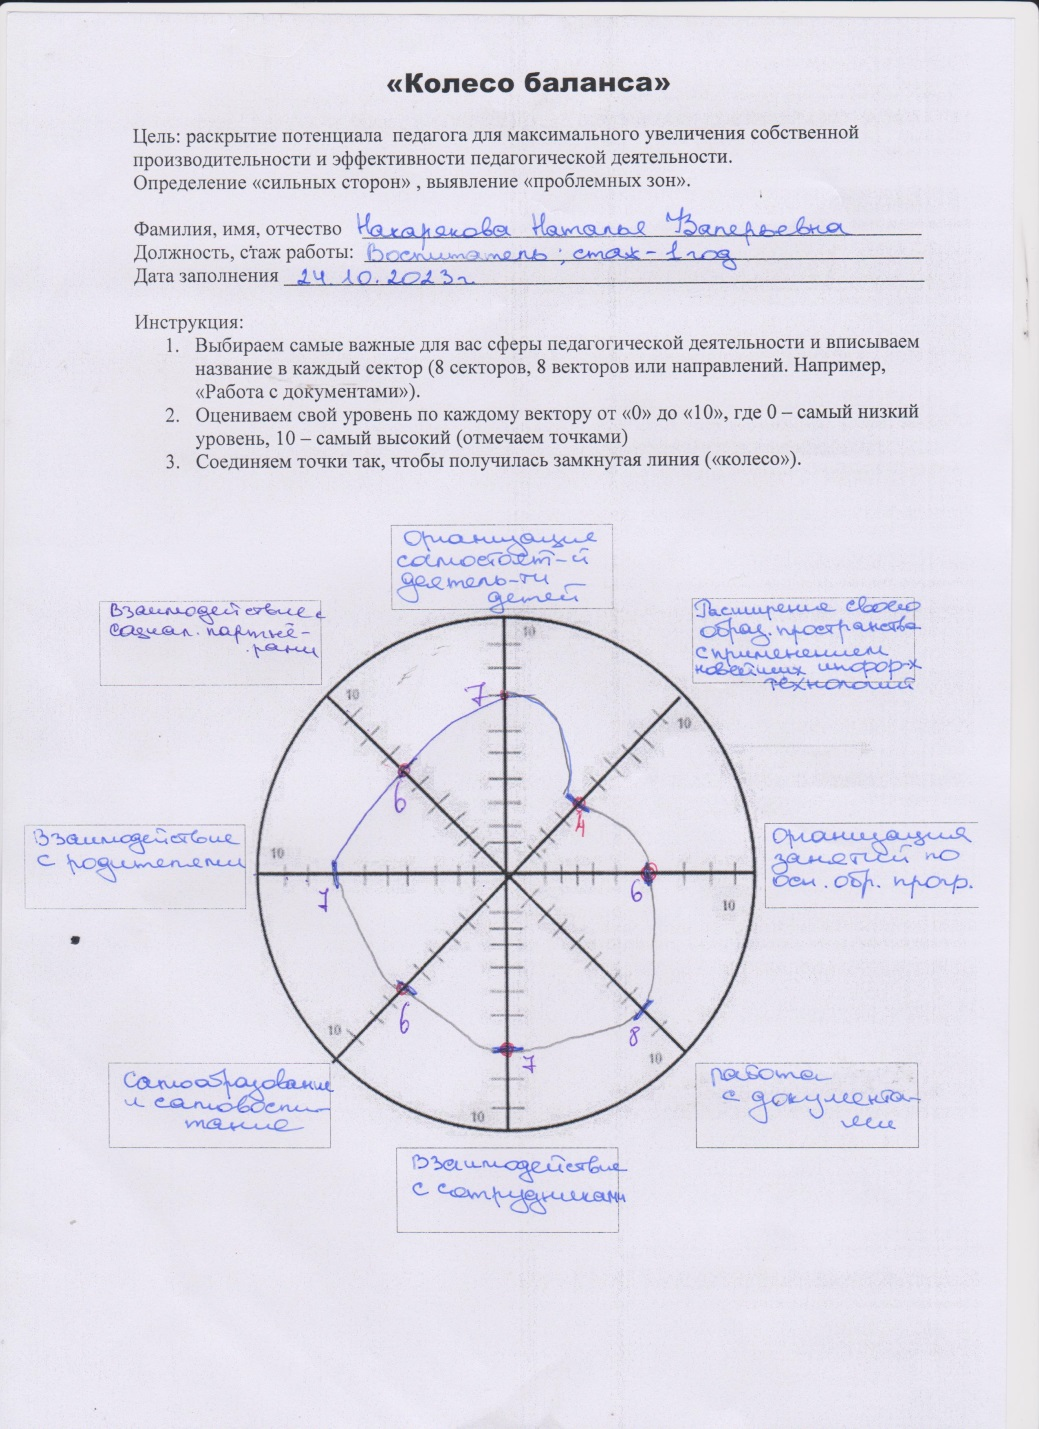 «Колесо баланса»
Цель: раскрытие потенциала педагога для максимального увеличения собственной
производительности и эффективности педагогической деятельности.
Определение «сильных сторон» , выявление «проблемных зон».
Фамилия, имя, отчество Накарякова Наталья Валерьевна
Должность, стаж работы: Воспитатель; стаж - 1 год
Дата заполнения 24.10.2023г.
Инструкция:
1. Выбираем самые важные для вас сферы педагогической деятельности и вписываем
название в каждый сектор (8 секторов, 8 векторов или направлений. Например,
«Работа с документами»).
2. Оцениваем свой уровень по каждому вектору от «0» до «10», где 0 – самый низкий
уровень, 10 – самый высокий (отмечаем точками)
3. Соединяем точки так, чтобы получилась замкнутая линия («колесо»).
Организация
самостоят-й
деятель-ти
детей
Взаимодействие с
социал. партнё-
рами
Расширение своего
образ. пространства
с применением
новейших информ-х
технологий
10
10
10
7
6
4
Взаимодействие
с родителями
10
7
Организация
занятий по
осн. обр. прогр.
6
10
6
10
8
10
7
10
Самообразование
и самовоспи-
тание
Работа
с документа-
ми
Взаимодействие
с сотрудниками